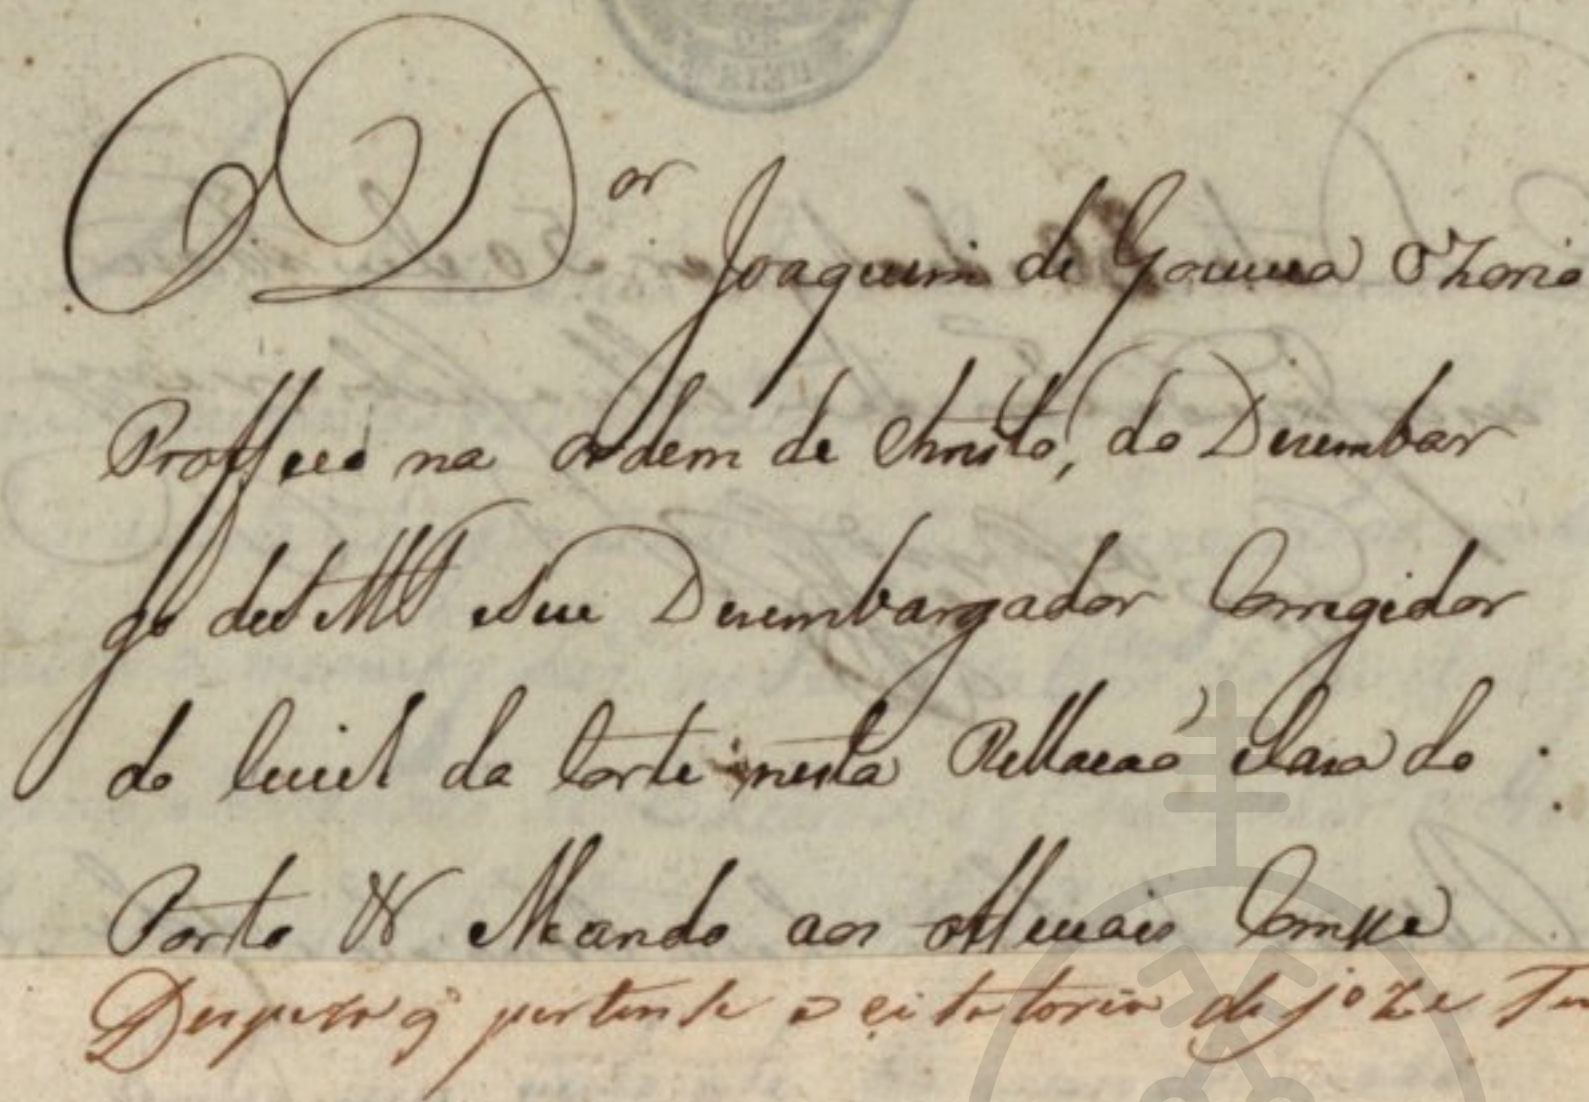 O D.or Joaquim de Gouvea Ozorio
Professo na ordem de Christo, do Dezembar
go de S Mg e Seu Dezembargador Corregidor
do Civel da Corte nesta Rellacaõ e Caza do
Porto & Mando aos officiais Compe
Despeza q pertense a citatoria de joze